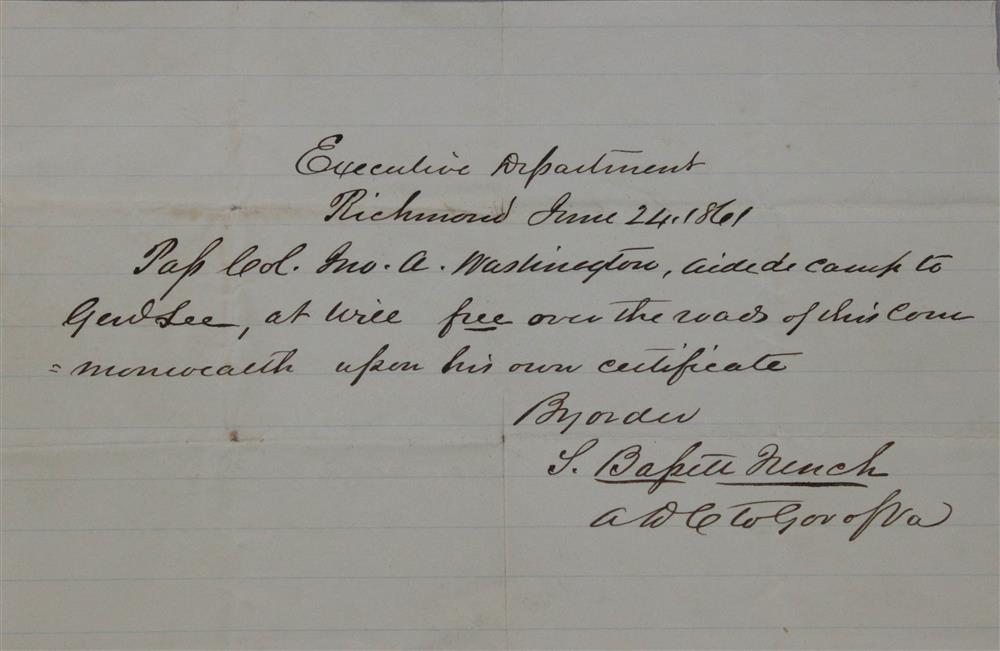 Executive Department
Richmond June 24. 1861
Pass Col. Jno. A. Washington, aide de camp to
Genl Lee, at will free over the roads of this Com
=monwealth upon his own certificate
By order
S. Bassett French
A D C to Gov of Va